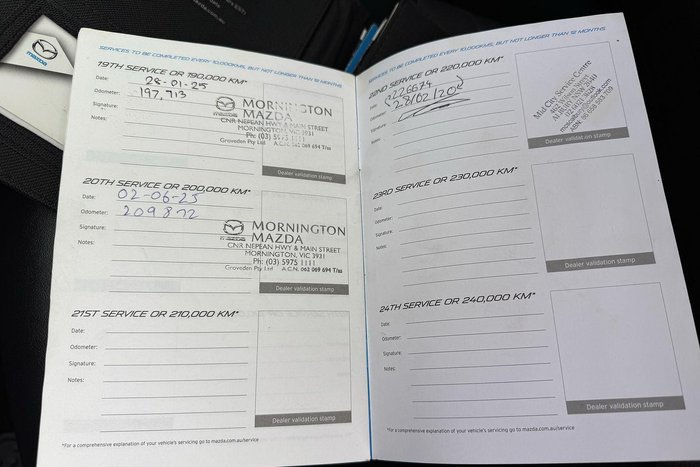 mazda
SERVICES TO BE COMPLETED EVERY 10,000KMS, BUT NOT LONGER THAN 12 MONTHS
19TH SERVICE OR 190,000 KM*
Date: 28-01-25
Odometer: 197,713
Signature:
Notes:
MORNINGTON
MAZDA
CNR NEPEAN HWY & MAIN STREET
MORNINGTON, VIC 3931
Ph: (03) 5975 1111
Groveden Pty Ltd A.C.N. 062 069 694 T/as
Dealer validation stamp
20TH SERVICE OR 200,000 KM*
Date: 02-06-25
Odometer: 209872
Signature:
Notes:
MORNINGTON
MAZDA
CNR NEPEAN HWY & MAIN STREET
MORNINGTON, VIC 3931
Ph: (03) 5975 1111
Groveden Pty Ltd A.C.N. 062 069 694 T/as
Dealer validation stamp
21ST SERVICE OR 210,000 KM*
Date:
Odometer:
Signature:
Notes:
Dealer validation stamp
*For a comprehensive explanation of your vehicle's servicing go to mazda.com.au/service
SERVICES TO BE COMPLETED EVERY 10,000KMS, BUT NOT LONGER THAN 12 MONTHS
22ND SERVICE OR 220,000 KM*
Date: 226674
Odometer: 28/02/20
Signature:
Notes:
Mid City Service Centre
Dealer validation stamp
23RD SERVICE OR 230,000 KM*
Date:
Odometer:
Signature:
Notes:
Dealer validation stamp
24TH SERVICE OR 240,000 KM*
Date:
Odometer:
Signature:
Notes:
Dealer validation stamp
*For a comprehensive explanation of your vehicle's servicing go to mazda.com.au/service